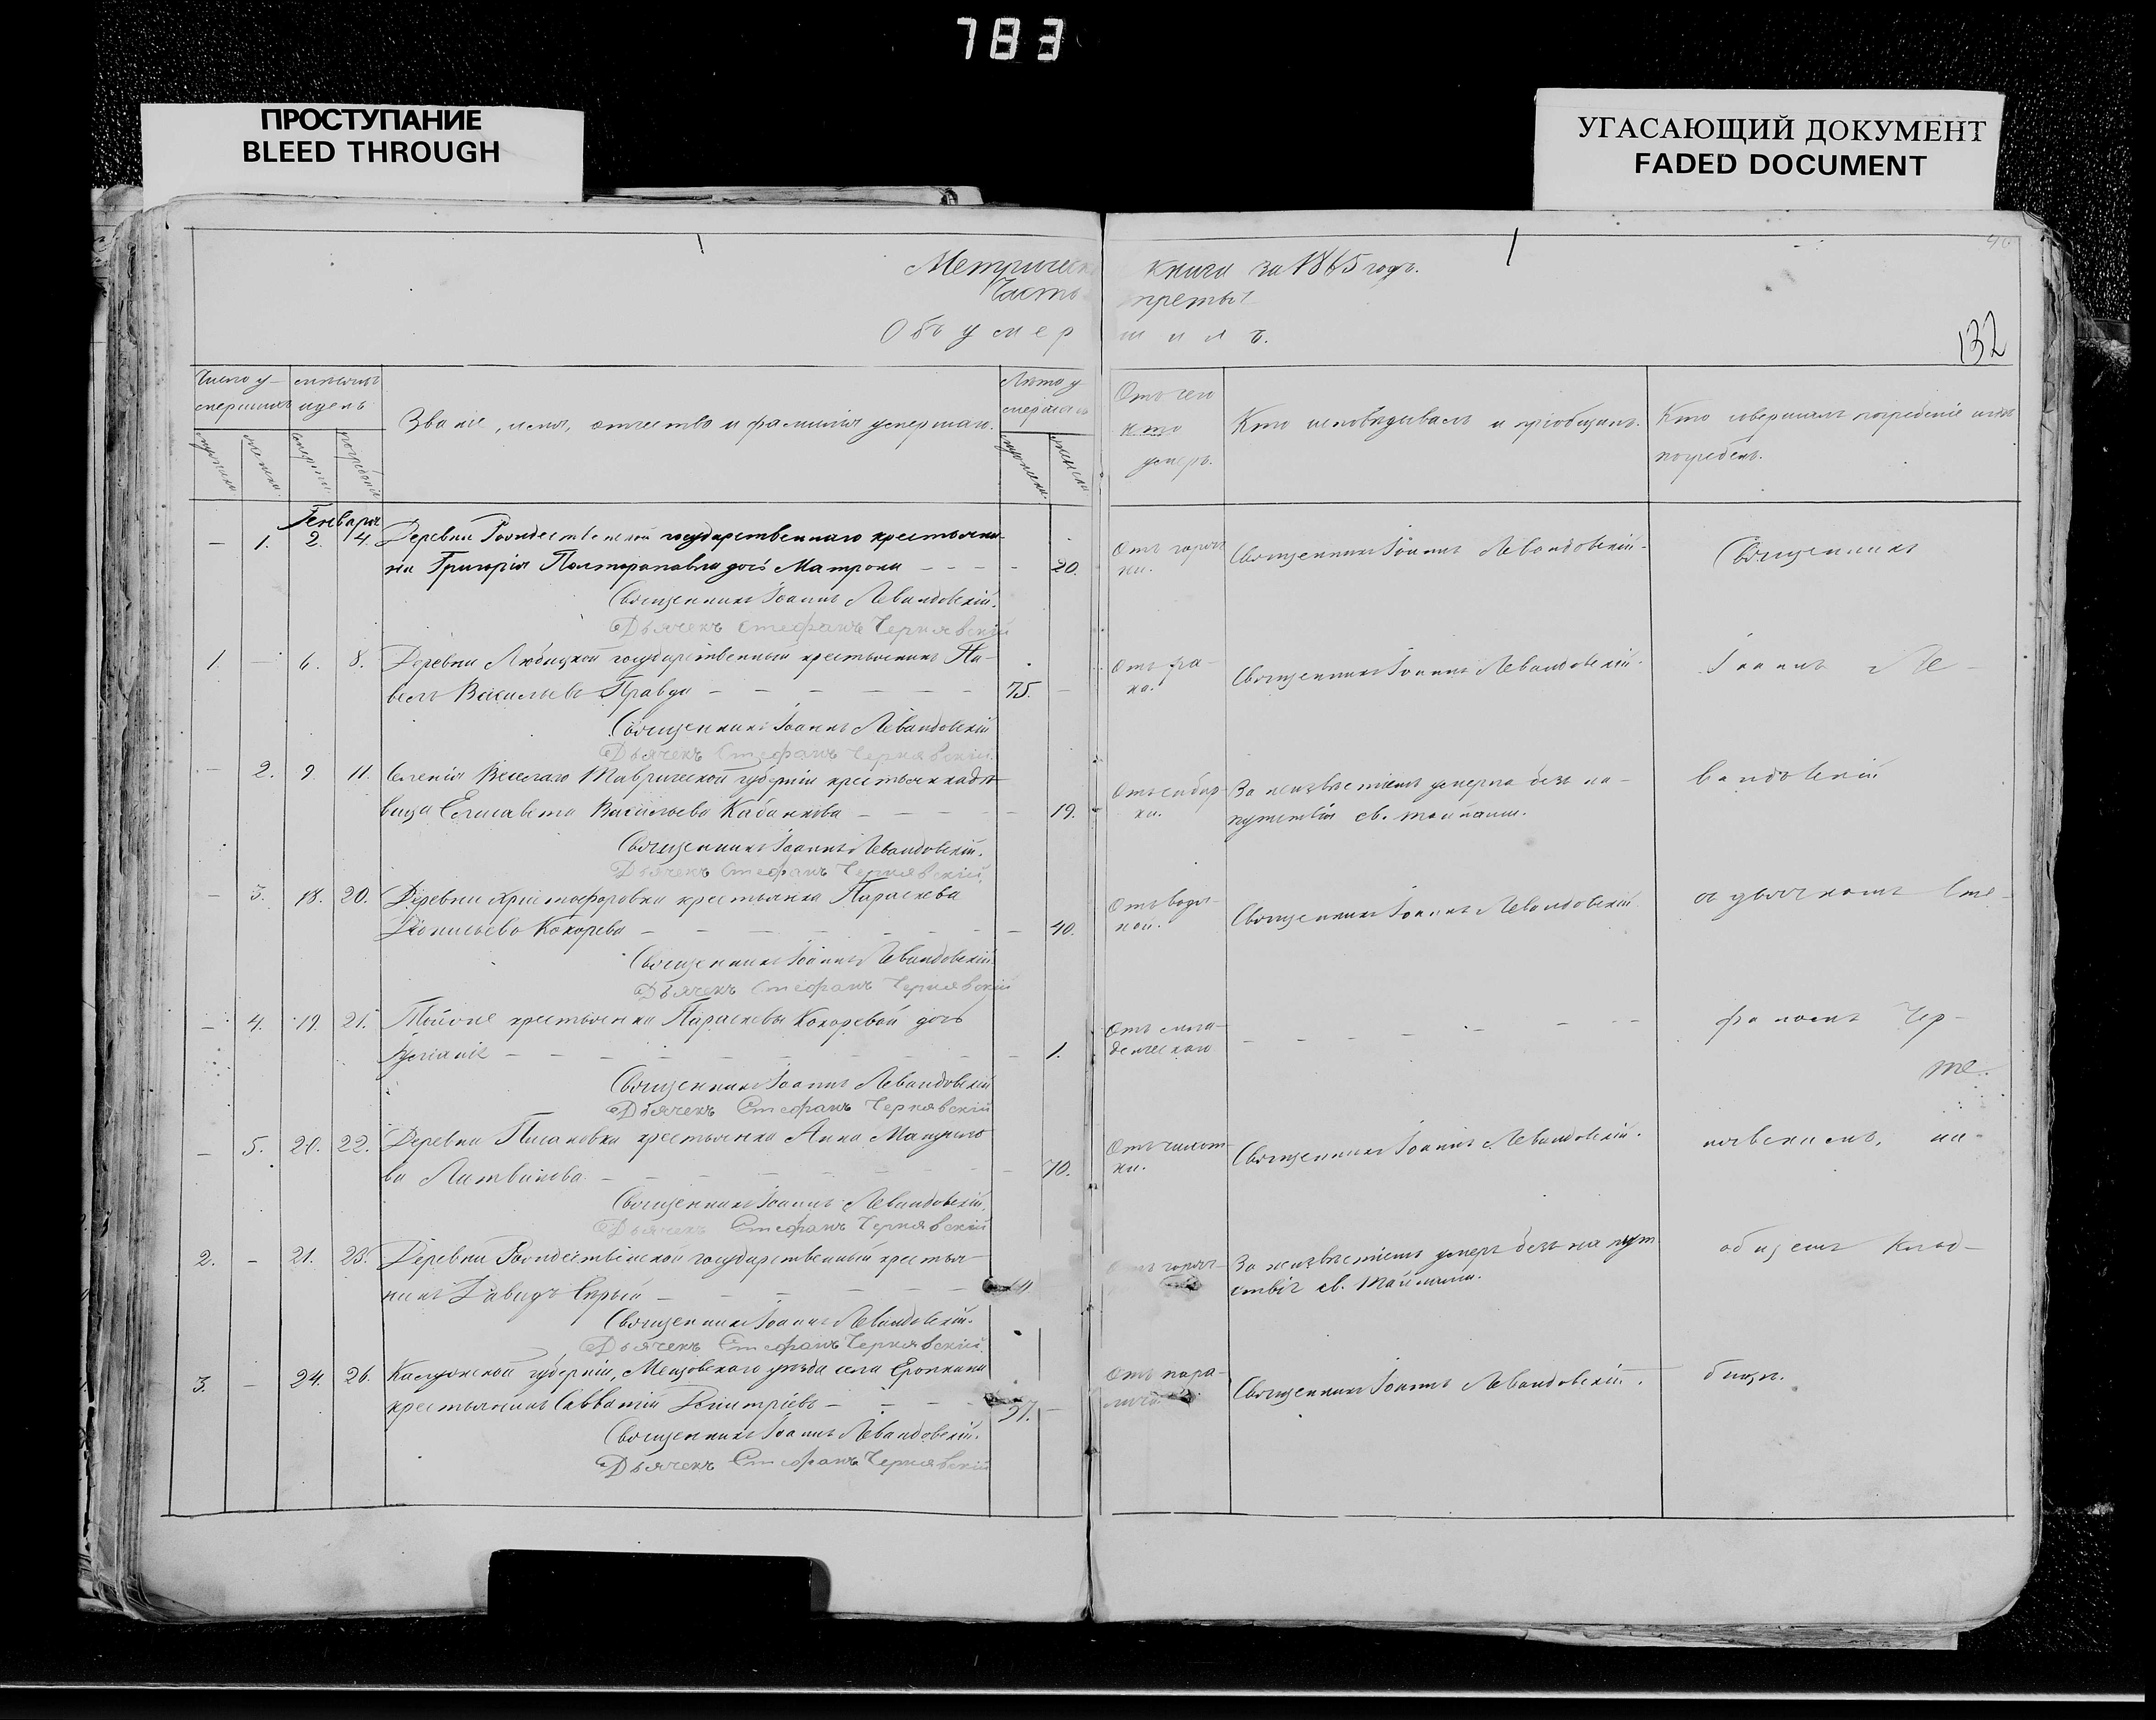 783
ПРОСТУПАНИЕ
BLEED THROUGH
УГАСАЮЩИЙ ДОКУМЕНТ
FADED DOCUMENT
Метрическ книги за 1865 годъ.
Часть третья
Объ умер шихъ.
132
Число у-
мершихъ
мужеска
женска
смерти
погребенія
Званіе, имя, отчество и фамилія умершаго.
Лѣта у-
мершаго
мужеска
женска
Отъ чего
кто
умеръ.
Кто исповѣдывалъ и пріобщалъ.
Кто совершалъ погребеніе и гдѣ
погребенъ.
Генваря
— 1. 2. 4. Деревни Рождественской государственнаго крестьяни-
на Григорія дочь Матрона — — — — 20.
Отъ горяч
ки.
Священникъ Іоаннъ Левандовскій.
Священникъ
Священникъ Іоаннъ Левандовскій.
Дьячекъ Стефанъ Чернявскій
1. — 6. 8. Деревни Любицкой государственный крестьянинъ Па-
велъ Васильевъ Правда — — — — — — 75. —
Священникъ Іоаннъ Левандовскій.
Іоаннъ Ле-
Священникъ Іоаннъ Левандовскій
Дьячекъ Стефанъ Чернявскій.
— 2. 9. 11. Селенія Веселаго Таврической губерніи крестьянка дѣ-
вица Елисавета Васильева Кабанкова — — — — — 19.
За неизвѣстіемъ умерла безъ на-
путствія св. тайнами.
вандовскій
Священникъ Іоаннъ Левандовскій.
Дьячекъ Стефанъ Чернявскій.
— 3. 18. 20. Деревни Христофоровки крестьянка Параскева
Кокорева — — — — — — — — 40.
Отъ водя-
ной.
Священникъ Іоаннъ Левандовскій
съ дьячкомъ Сте-
Священникъ Іоаннъ Левандовскій.
Дьячекъ Стефанъ Чернявскій
— 4. 19. 21. крестьянки Параскевы Кокоревой дочь
— — — — — — — — 1.
Отъ мла-
денческаго
— — — — — — —
фаномъ Чер-
те.
Священникъ Іоаннъ Левандовскій
Дьячекъ Стефанъ Чернявскій
— 5. 20. 22. Деревни крестьянка Анна
ва Литвинова — — — — — — — 70.
Отъ чахот
ки.
Священникъ Іоаннъ Левандовскій.
нявскимъ, на-
Священникъ Іоаннъ Левандовскій.
Дьячекъ Стефанъ Чернявскій
2. — 21. 23. Деревни Рождественской государственный крестья-
нинъ Давидъ Сѣрый — — — — — —
горяч-
За неизвѣстіемъ умеръ безъ на пут
ствія св. Тайнами.
общемъ клад-
Священникъ Іоаннъ Левандовскій.
Дьячекъ Стефанъ Чернявскій.
3. — 24. 26. Калужской губерніи, Мещовскаго уѣзда села Еропкина
крестьянинъ Савватій Димитріевъ — — — — 57. —
Отъ пара-
лича.
Священникъ Іоаннъ Левандовскій.
бищѣ.
Священникъ Іоаннъ Левандовскій.
Дьячекъ Стефанъ Чернявскій